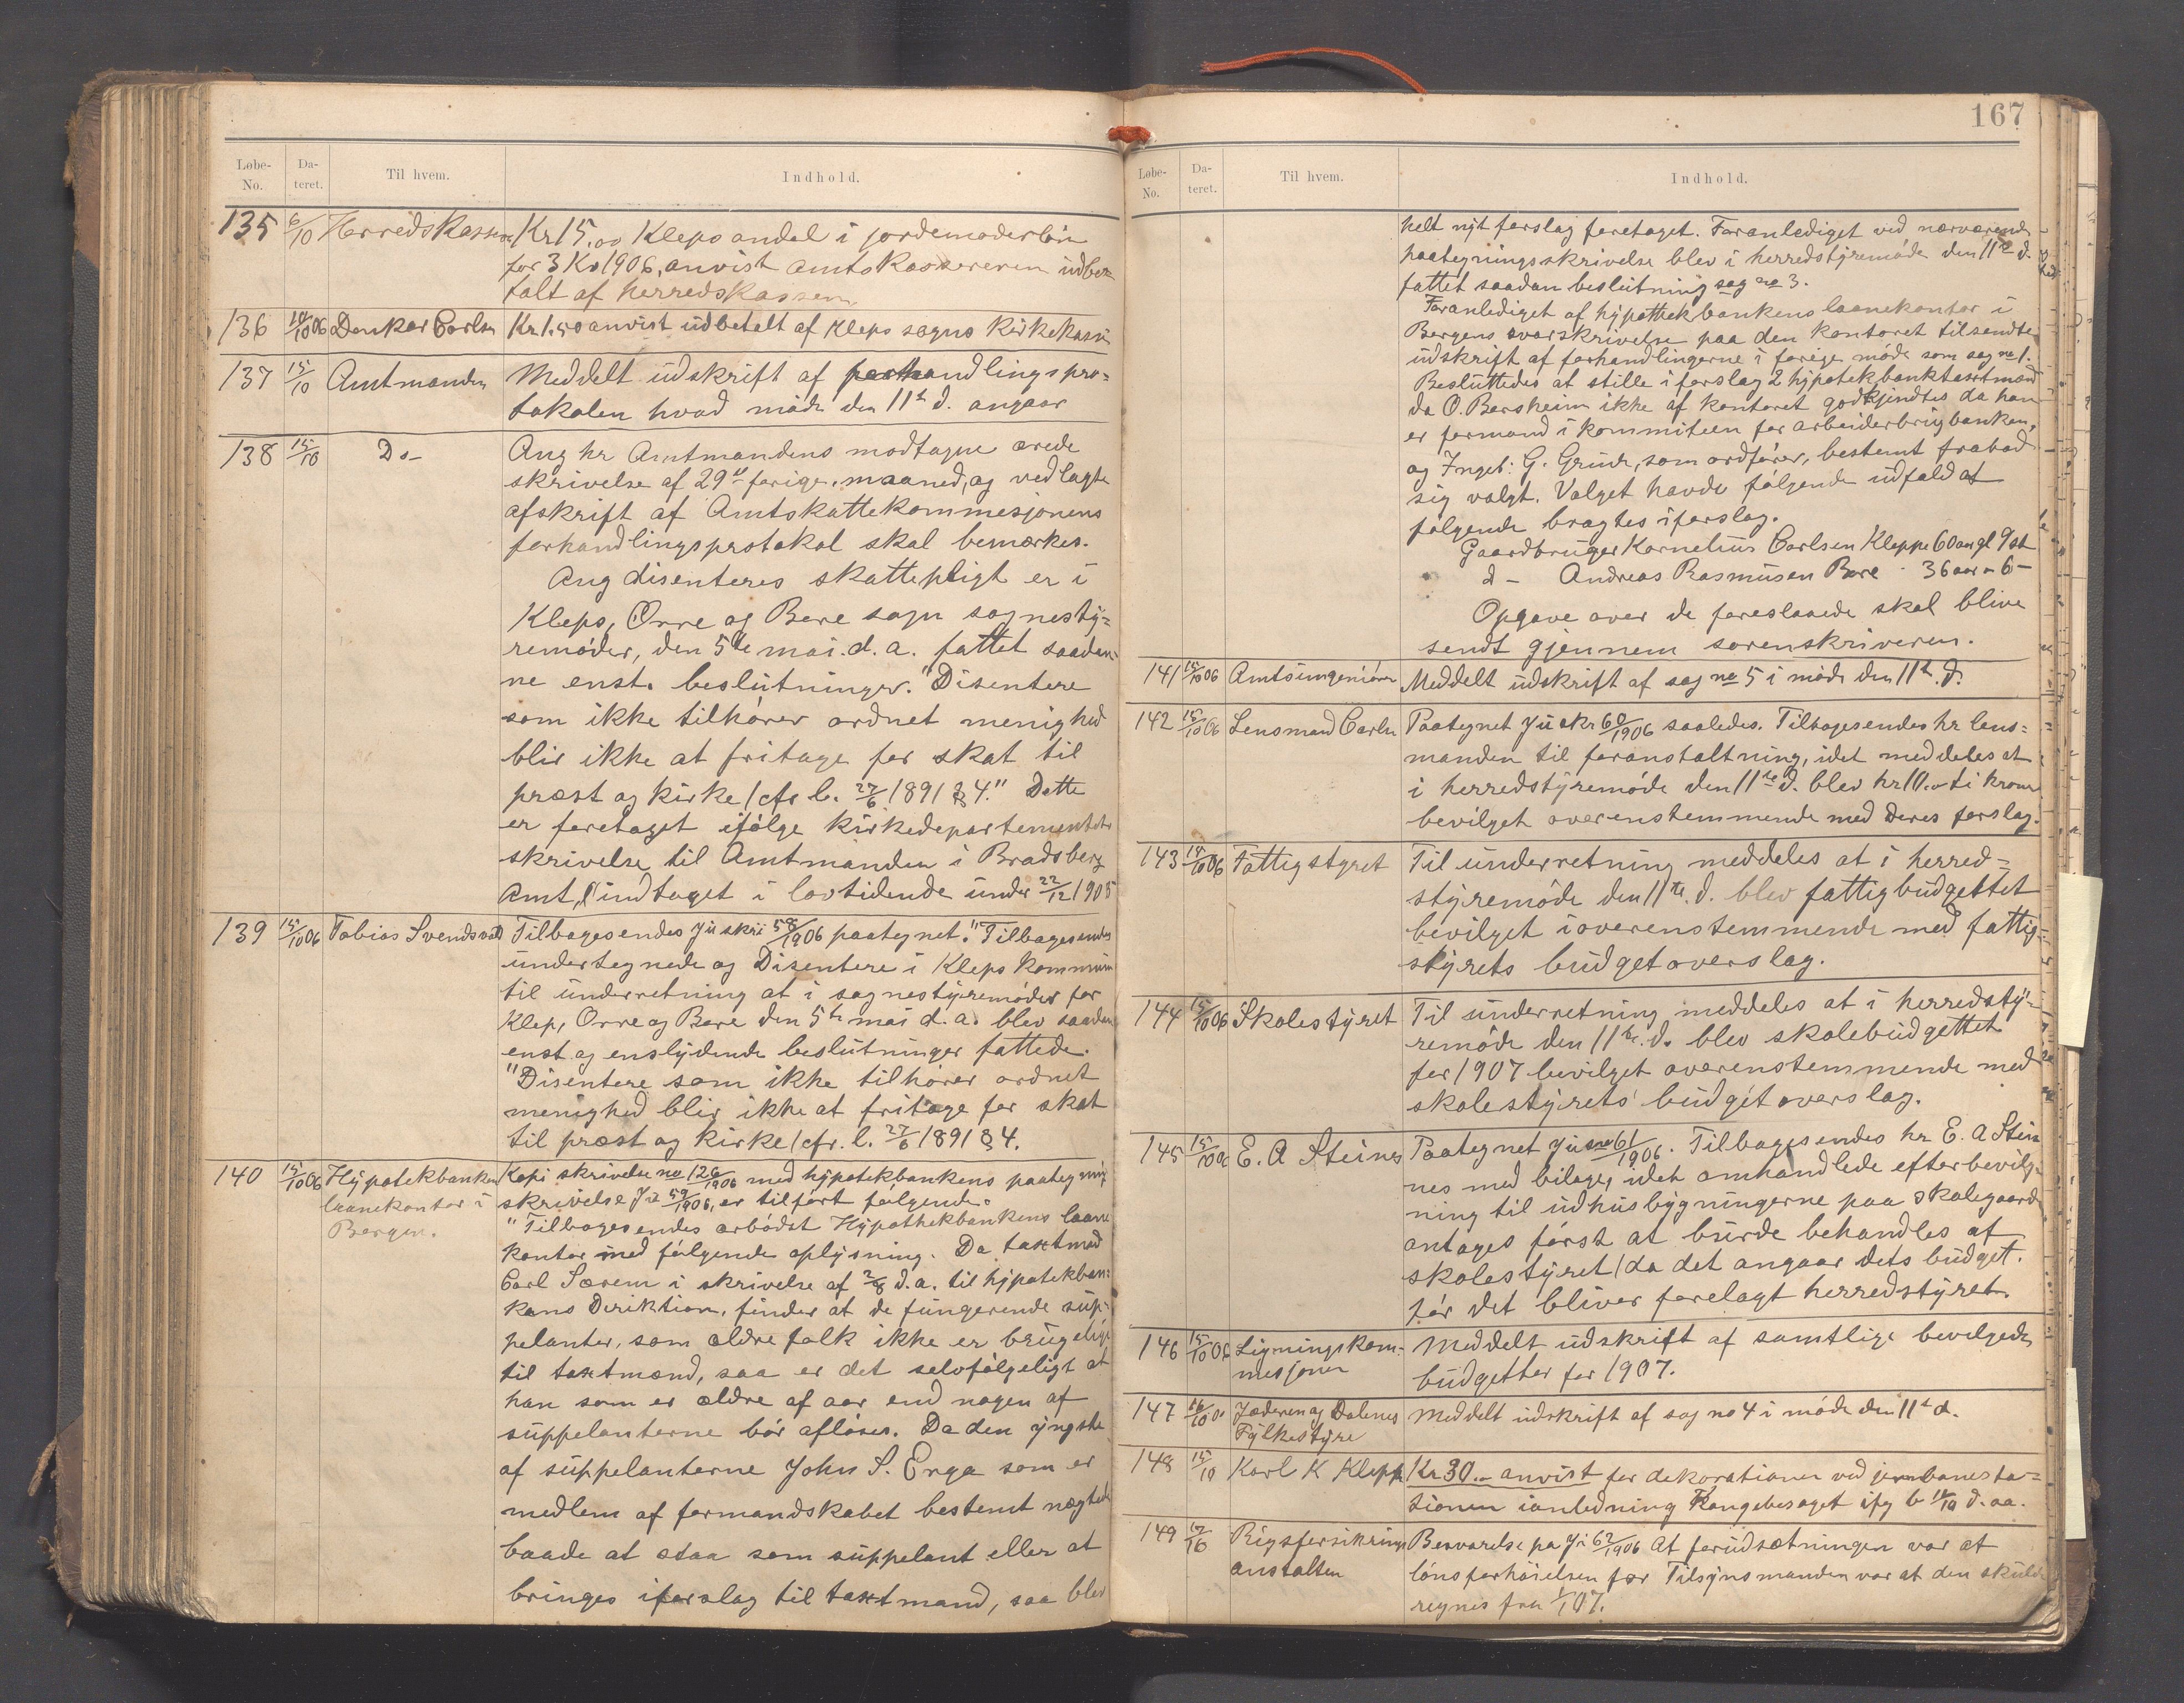 Løbe-No. Da-teret. Til hvem. Indhold.
135 6/10 Herredskassen Kr 15,00 Kleps andel i jordemoderløn
for 3 Kv 1906, anvist Amtskassereren udbe-
talt af herredskassen
136 10/10 06 Denkar Carlsen Kr 1,50 anvist udbetalt af Kleps sogns Kirkekasse
137 15/10 Amtmanden Meddelt udskrift af forhandlingspro-
tokolen hvad møde den 11te d. angaar
138 15/10 Do- Ang hr Amtmandens modtagne ærede
skrivelse af 29de forige maaned, og vedlagte
afskrift af Amtskattekommesjonens
forhandlingsprotokol skal bemærkes.
Ang disenteres skattepligt er i
Kleps, Orre og Bore sogn sognesty-
remøder, den 5te mai d. a. fattet saadan-
ne enst. beslutninger. "Disentere
som ikke tilhører ordnet menighed
blir ikke at fritage for skat til
præst og kirke/cfr l. 27/6 1891 § 4." Dette
er foretaget ifølge kirkedepartementets
skrivelse til Amtmanden i Bradsberg
Amt, indtaget i lovtidende under 22/12 1905
139 15/10 06 Tobias Svendsvoll Tilbagesendes Ju skri 58/1906 paategnet. "Tilbagesendes
undertegnede og Disentere i Kleps Kommune
til underretning at i sognestyremøder for
Klep, Orre og Bore den 5te mai d. a. blev saadan
enst og enslydende beslutninger fattede.
"Disentere som ikke tilhører ordnet
menighed blir ikke at fritage for skat
til præst og kirke/cfr. l. 27/6 1891 § 4.
140 15/10 06 Hypotekbankens Kopi skrivelse no 126/1906 med hypotekbankens paategning
laanekontor i skrivelse Ju 59/1906, er tilført følgende.
Bergen. "Tilbagesendes ærbødst Hypothekbankens laane
kontor med følgende oplysning. Da taxtmed
Carl Særem i skrivelse af 2/8 d.a. til hypotekban-
kens Deriktion, finder at de fungerende sup-
pelanter, som ældre folk ikke er brugelige
til taxtmænd, saa er det selvfølgeligt at
han som er ældre af aar end nogen af
suppelanterne bør afløses. Da den yngste
af suppelanterne John S. Erga som er
medlem af formandskabet bestemt nægtede
baade at staa som suppelant eller at
bringes iforslag til taxtmand, saa blev
167
Løbe-No. Da-teret. Til hvem. Indhold.
helt nyt forslag foretaget. Foranlediget ved nærværende
paategningsskrivelse blev i herredstyremøde den 11te d.
fattet saadan beslutning sag no 3.
Foranlediget af hypothekbankens laanekontor i
Bergens svarskrivelse paa den kontoret tilsendte
udskrift af forhandlingerne i forige møde som sag no 1.
Besluttedes at stille i forslag 2 hypotekbanktaxtmænd
da O. Borsheim ikke af kontoret godkjendtes da han
er formand i kommiteen for arbeiderbrugbanken,
og Ingeb: G. Grude, som ordfører, bestemt frabad
sig valgt. Valget havde følgende udfald at
følgende bragtes iforslag.
Gaardbruger Kornelius Carlsen Kleppe 60 aar gl 9 st
d - Andreas Rasmusen Bore 36 aar - 6 -
Opgave over de foreslaaede skal blive
sendt gjennem sorenskriveren.
141 15/10 06 Amtsingeniøren Meddelt udskrift af sag no 5 i møde den 11te d.
142 15/10 06 Lensmand Carlsen Paategnet Ju skr 60/1906 saaledes. Tilbagesendes hr lens-
manden til foranstaltning, idet meddeles at
i herredstyremøde den 11te d. blev kr 10.- ti kroner
bevilget overenstemmende med Deres forslag.
143 15/10 06 Fattigstyret Til underretning meddeles at i herred-
styremøde den 11te d. blev fattigbudgettet
bevilget i overenstemmende med fattig-
styrets budgetoverslag.
144 15/10 06 Skolestyret Til underretning meddeles at i herredsty-
remøde den 11te d. blev skolebudgettet
for 1907 bevilget overenstemmende med
skolestyrets budgetoverslag.
145 15/10 06 E. A Steines Paategnet Ju no 61/1906. Tilbagesendes hr E. A Stei
nes med bilager, idet omhandlede efterbevilg-
ning til udhusbygningerne paa skolegaarde
antages først at burde behandles af
skolestyret/da det angaar dets budget.
før det bliver forelagt herredstyret.
146 15/10 06 Ligningskom- Meddelt udskrift af samtlige bevilgede
mesjonen budgetter for 1907.
147 16/10 06 Jæderen og Dalenes Meddelt udskrift af sag no 4 i møde den 11te d.
Fylkestyre
148 15/10 Karl K Kleppe Kr 30.- anvist for dekorationen ved jernbanesta-
sionen ianledning Kongebesøget ifg b 11/10 d. aa.
149 17/10 Rigsforsikrings Besvarelse pa Ju 62/1906 At forudsætningen var at
anstalten lønsforhøielsen for Tilsynsmanden var at den skulde
regnes fra 1/1 07.